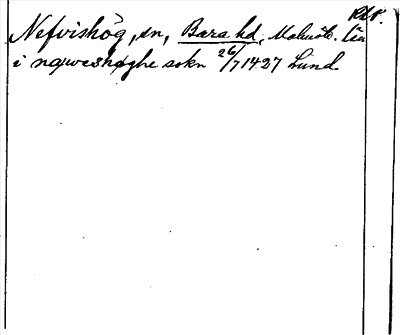 Nefvishög, sn, Bara hd, Malmöh. län
i nqweshøghe sokn 26/7 1427 Lund.